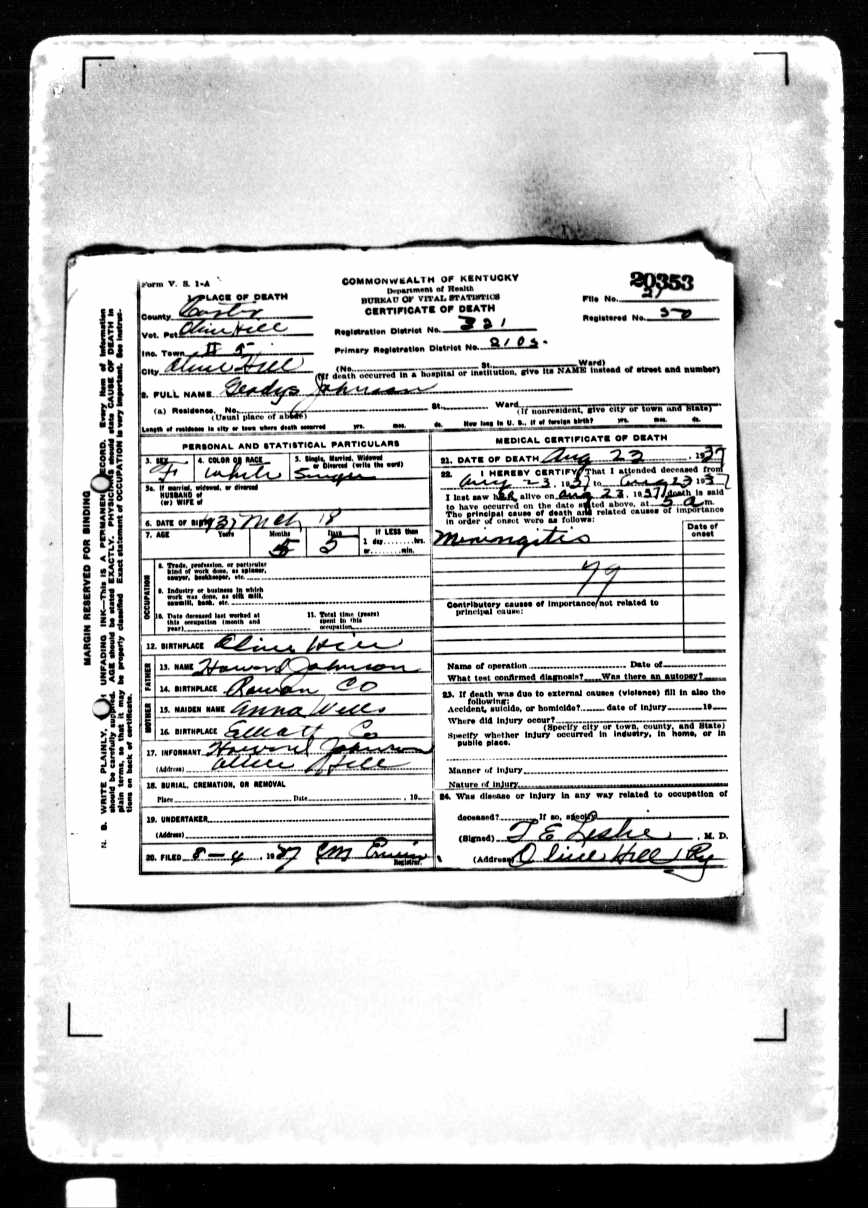 Form V. S. 1-A
COMMONWEALTH OF KENTUCKY
Department of Health
BUREAU OF VITAL STATISTICS
CERTIFICATE OF DEATH
20353
File No. 27
Registered No. 50
1. PLACE OF DEATH
County Carter
Vot. Pct. Olive Hill
Registration District No. 221
Inc. Town
Primary Registration District No. 2105
City Olive Hill
(No. St. Ward)
(If death occurred in a hospital or institution, give its NAME instead of street and number)
2. FULL NAME Gladys Johnson
(a) Residence. No. St. Ward
(Usual place of abode) (If nonresident, give city or town and State)
Length of residence in city or town where death occurred yrs. mos. ds. How long in U. S., if of foreign birth? yrs. mos. ds.
PERSONAL AND STATISTICAL PARTICULARS
3. SEX F
4. COLOR OR RACE White
5. Single, Married, Widowed or Divorced (write the word) Single
5a. If married, widowed, or divorced
HUSBAND of
(or) WIFE of
6. DATE OF BIRTH 37 Mch 18
7. AGE Years Months 5 Days 5 If LESS than
1 day hrs.
or min.
OCCUPATION
8. Trade, profession, or particular
kind of work done, as spinner,
sawyer, bookkeeper, etc.
9. Industry or business in which
work was done, as silk mill,
sawmill, bank, etc.
10. Date deceased last worked at
this occupation (month and
year)
11. Total time (years)
spent in this
occupation
12. BIRTHPLACE Olive Hill
FATHER
13. NAME Howard Johnson
14. BIRTHPLACE Rowan CO
MOTHER
15. MAIDEN NAME Anna Wells
16. BIRTHPLACE Elliott Co
17. INFORMANT Howard Johnson
(Address) Olive Hill
18. BURIAL, CREMATION, OR REMOVAL
Place Date , 19
19. UNDERTAKER
(Address)
20. FILED 8-4, 1937 Registrar.
MEDICAL CERTIFICATE OF DEATH
21. DATE OF DEATH Aug 23, 1937
22. I HEREBY CERTIFY, That I attended deceased from
Aug 23, 1937 to Aug 23 1937
I last saw her alive on Aug 23, 1937, death is said
to have occurred on the date stated above, at 5 a m.
The principal cause of death and related causes of importance
in order of onset were as follows:
Date of
onset
Meningitis
79
Contributory cause of importance not related to
principal cause:
Name of operation Date of
What test confirmed diagnosis? Was there an autopsy?
23. If death was due to external causes (violence) fill in also the
following:
Accident, suicide, or homicide? date of injury 19
Where did injury occur?
(Specify city or town, county, and State)
Specify whether injury occurred in industry, in home, or in
public place.
Manner of injury
Nature of injury
24. Was disease or injury in any way related to occupation of
deceased? If so, specify
(Signed) T E Leslie, M. D.
(Address) Olive Hill Ky
MARGIN RESERVED FOR BINDING